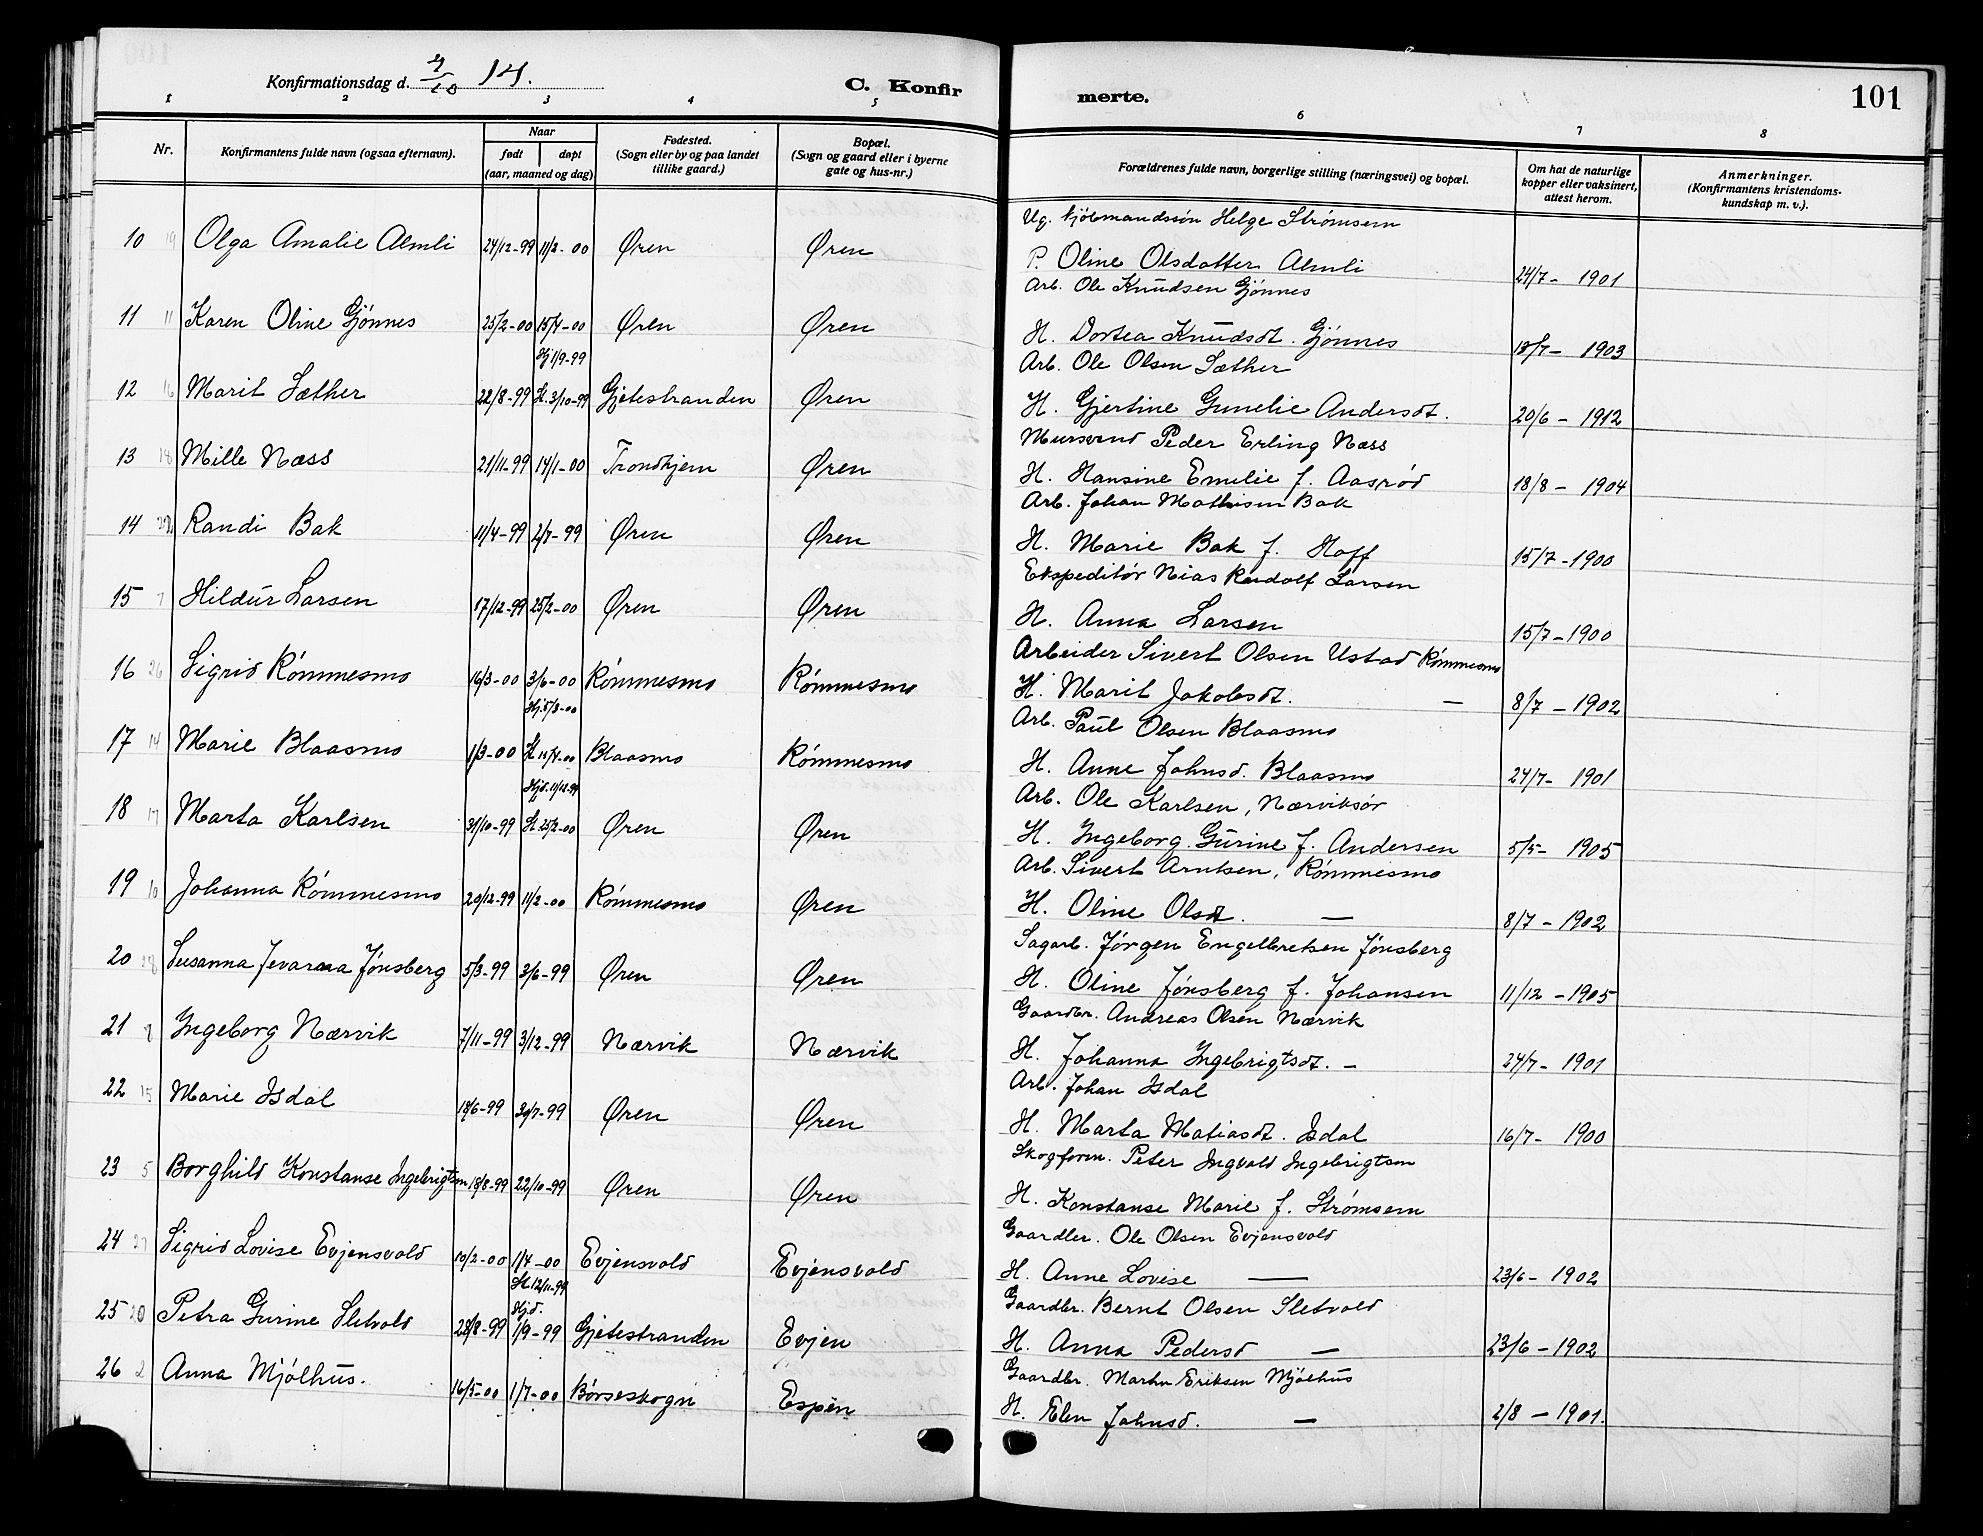 Konfirmationsdag d. 4/10 14.
C. Konfir
merte.
101
1 2 3 4 5 6 7 8
Nr.
Konfirmantens fulde navn (ogsaa efternavn).
Naar
født døpt
(aar, maaned og dag)
Fødested.
(Sogn eller by og paa landet
tillike gaard.)
Bopæl.
(Sogn og gaard eller i byerne
gate og hus-nr.)
Forældrenes fulde navn, borgerlige stilling (næringsvei) og bopæl.
Om hat de naturlige
kopper eller vaksinert,
attest herom.
Anmerkninger.
(Konfirmantens kristendoms-
kundskap m. v.).
Ug. kjøbmandssøn Helge Strømsem
10 19 Olga Amalie Almli 24/12-99 11/2-00 Øren Øren P. Oline Olsdatter Almli 24/7- 1901
Arb. Ole Knudsen Gjönnes
11 11 Karen Oline Gjönnes 25/2-00 15/4-00 Øren Øren H. Dortea Knudsdt. Gjönnes 18/7- 1903
Hj 1/9-99 Arb. Ole Olsen Sæther
12 16 Marit Sæther 22/8-99 K. 3/10-99 Gjetestranden Øren H. Gjertine Gunelie Andersdt. 20/6 - 1912
Mursvend Peder Erling Næss
13 18 Mille Næss 21/11-99 14/1-00 Trondhjem Øren H. Hansine Emilie f. Aasrød 18/8 - 1904
Arb. Johan Mathisen Bak
14 Randi Bak 11/4-99 2/7-99 Øren Øren H. Marie Bak f. Hoff 15/7-1900
Ekspeditör Nias Randolf Larsen
15 7 Hildur Larsen 17/12-99 25/2-00 Øren Øren H. Anna Larsen 15/7-1900
Arbeider Sivert Olsen Ustad Römmesmo
16 26 Sigrid Römmesmo 16/3-00 3/6-00 Römmesmo Römmesmo H. Marit Jakobsdt. — 8/7 - 1902
Hj. 5/3-00 Arb. Paul Olsen Blaasmo
17 14 Marie Blaasmo 1/3-00 K 15/4-00 Blaasmo Römmesmo H. Anne Johnsd. Blaasmo 24/7- 1901
Arb. Ole Karlsen, Nærviksör
18 17 Marta Karlsen 31/10-99 K 25/2-00 Øren Øren H. Ingeborg Gurine f. Andersen 5/5- 1905
Arb. Sivert Arntsen, Römmesmo
19 10 Johanna Römmesmo 20/12-99 11/2-00 Römmesmo Øren H. Oline Olsdt. — 8/7 - 1902
Sagarb. Jörgen Engelbretsen Jönsberg
20 28 Susanna Jevarna Jönsberg 5/3-99 3/6-99 Øren Øren H. Oline Jönsberg f. Johansen 11/12 - 1905
Gaardbr. Andreas Olsen Nærvik
21 Ingeborg Nærvik 7/11-99 3/12-99 Nærvik Nærvik H. Johanna Ingebrigtsdt. - 24/7- 1901
Arb. Johan Isdal
22 15 Marie Isdal 18/6-99 30/7-99 Øren Øren H. Marta Matiasdt. Isdal 16/7- 1900
Skogform. Peter Ingvald Ingebrigtsen
23 5 Borghild Konstanse Ingebrigtsen 18/8-99 22/10-99 Øren Øren H. Konstanse Marie f. Strømsem
Gaardbr. Ole Olsen Evjensvold
24 27 Sigrid Lovise Evjensvold 10/2-00 1/4-00 Evjensvold Evjensvold H. Anne Lovise — 23/6- 1902
K. 12/11-99 Gaardbr. Bernt Olsen Sletvold
25 20 Petra Gurine Sletvold 28/8-99 Hj.d. 1/9-99 Gjetestranden Evjen H. Anna Pedersd — 23/6 - 1902
Gaardbr. Martin Eriksen Mjölhus
26 2 Anna Mjölhus. 16/5-00 1/7-00 Börseskogn Espen H. Elen Johnsd. — 2/8 - 1901.